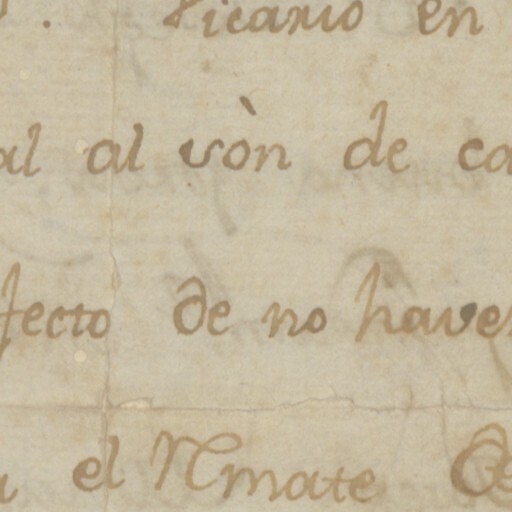 Vicario en
al al sòn de ca
fecto de no haver
el Rmate de